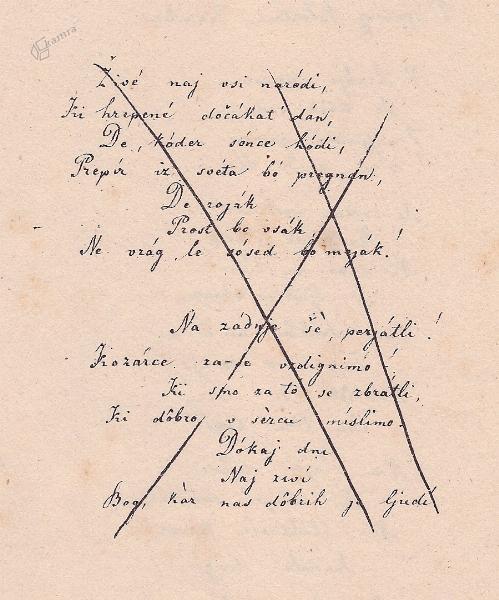 kamra
Živé naj vsi naródi,
Ki hrepené dočákat' dán,
De, kóder sónce hódi,
Prepír iz svéta bó pregnan,
De roják
Prost bo vsák,
Ne vrág, le sósed bo meják!
Na zádnje še, perjátli!
Kozárce za-se vzdignimó,
Ki smo za tó se zbrátli,
Ki dôbro v sèrcu míslimo.
Dókaj dni
Naj živí
Bog, kàr nas dôbrih je ljudí